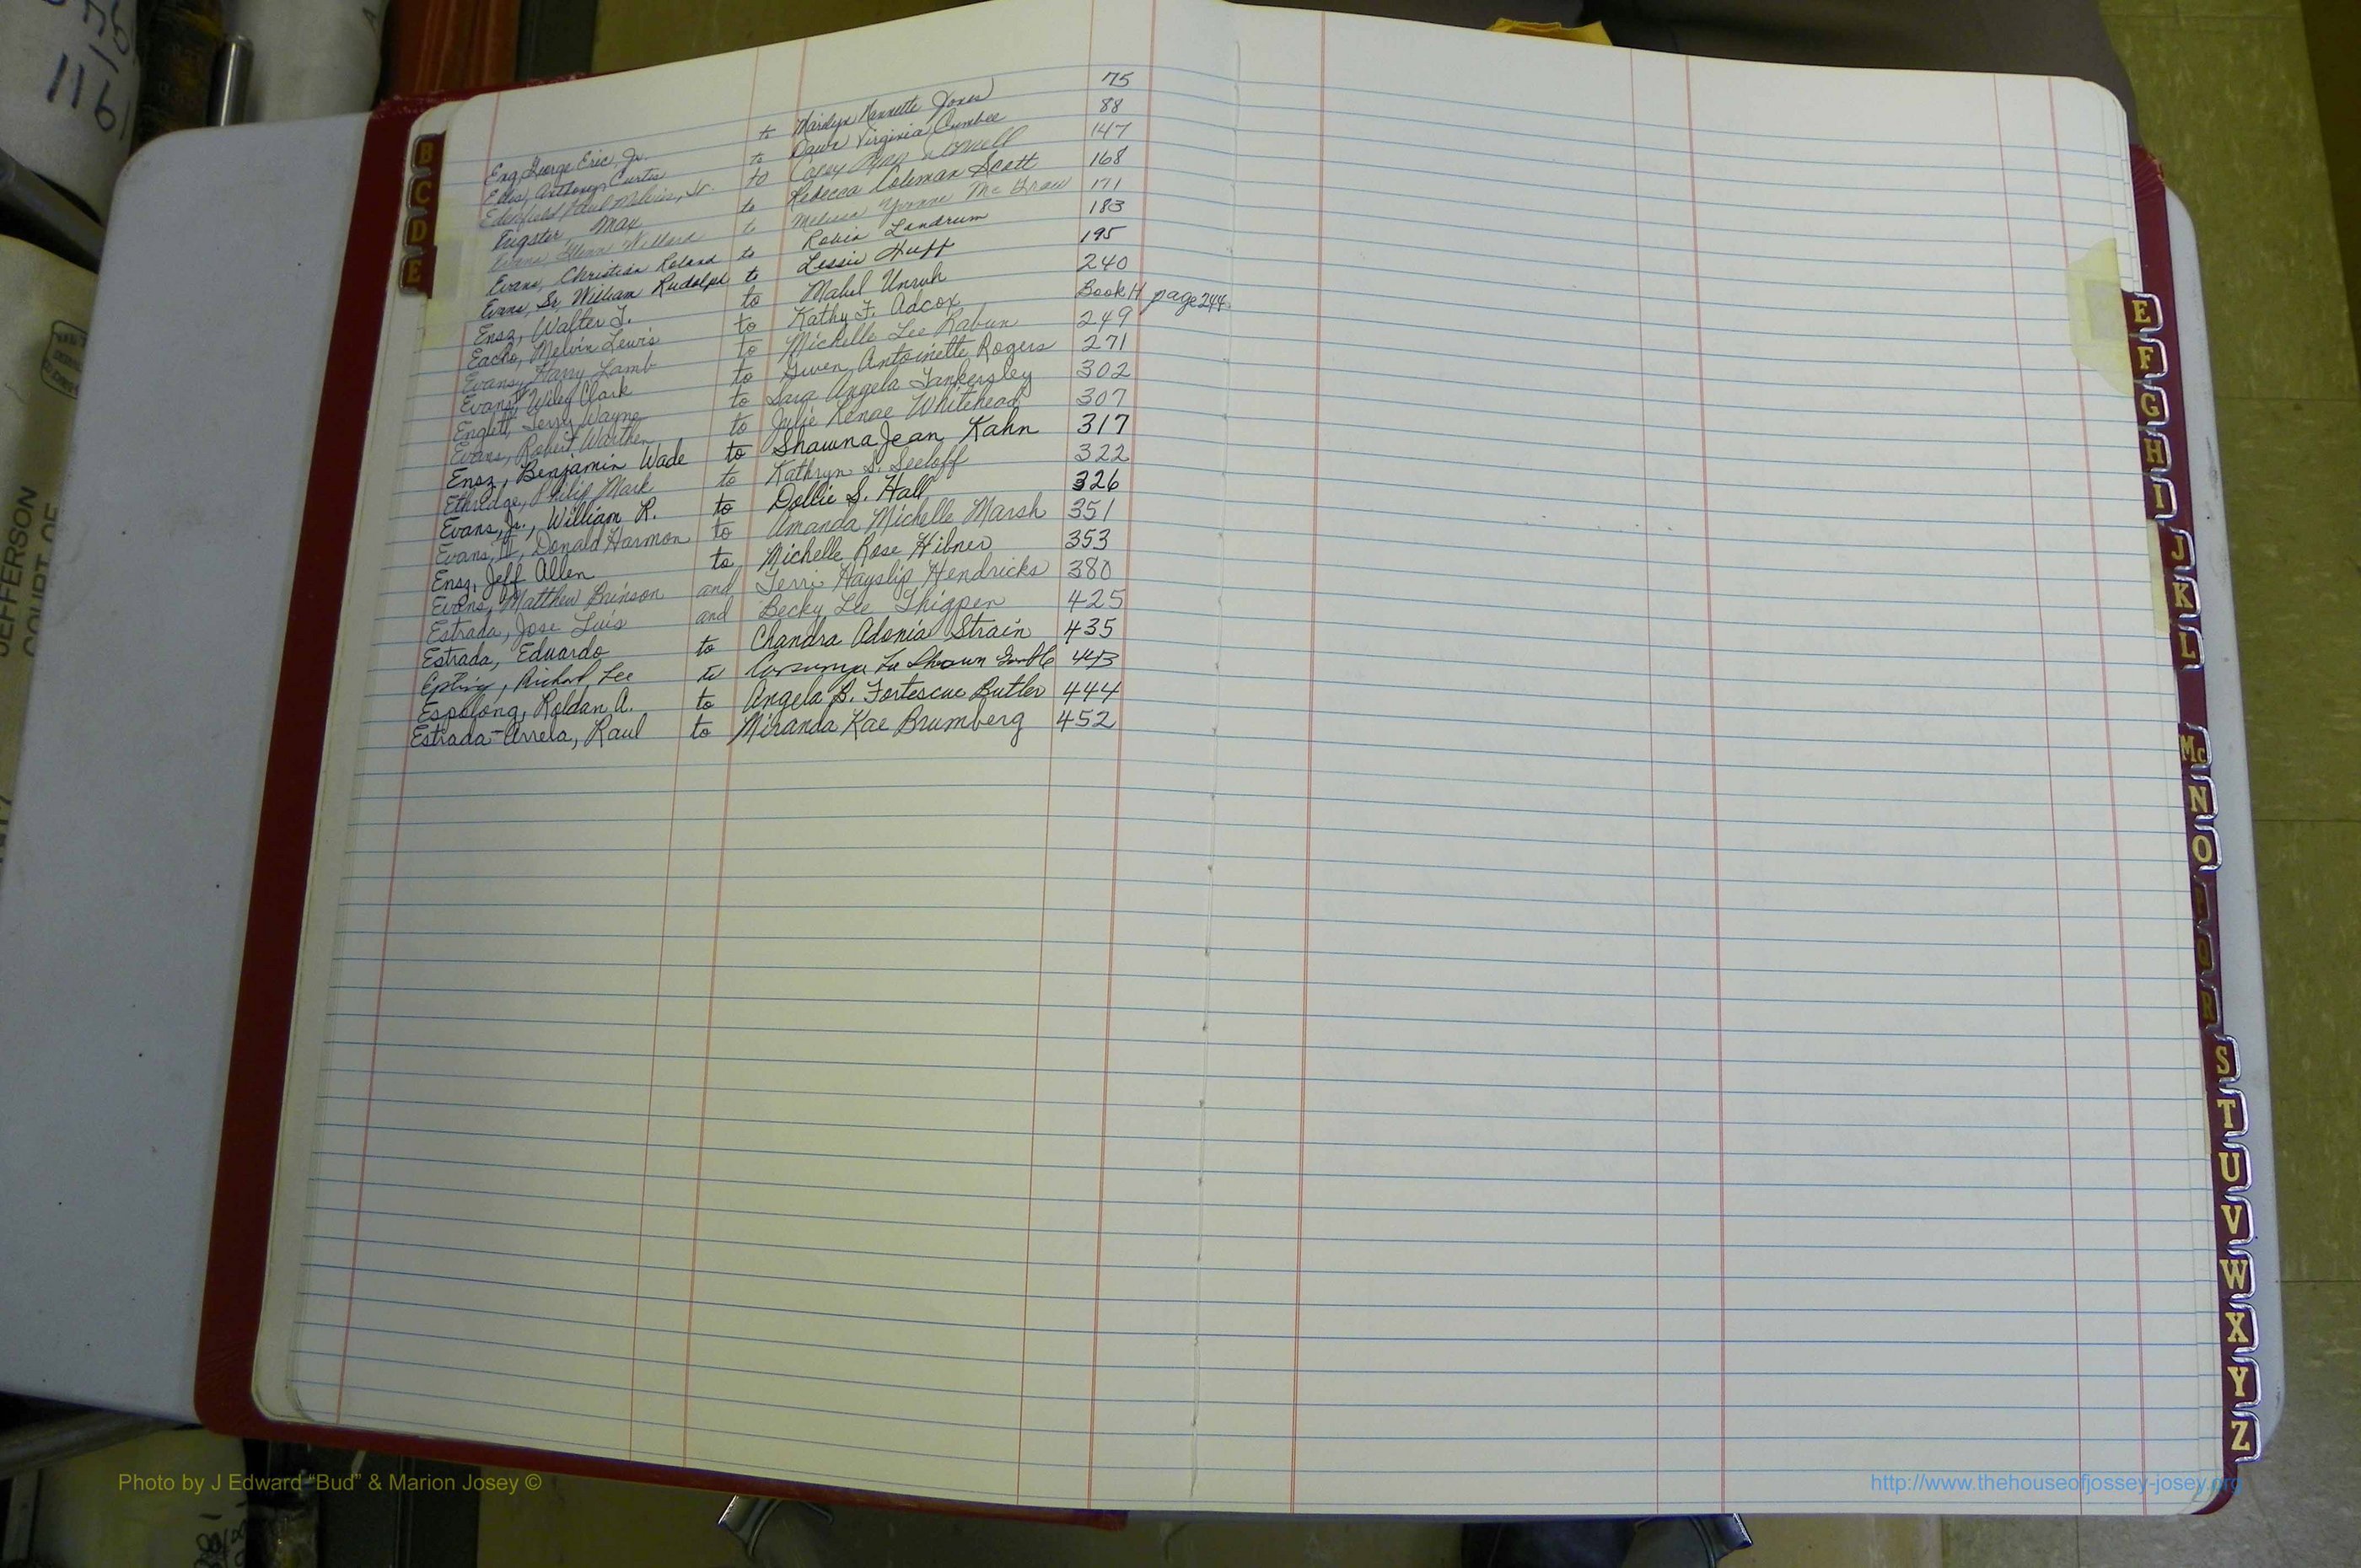 Eng, George Eric, Jr. to Marilyn Nannette Jones 75
Ellis, Anthony Curtis to Dawn Virginia Cumbee 88
Edenfield, Paul Jr. to Carey Ann 147
Max to Rebecca Coleman Scott 168
Evans, Glenn Willard to Melissa Yvonne McGraw 171
Evans, Christian Roland to Robin Landrum 183
Evans, Sr. William Rudolph to Lessie Huff 195
Ensz, Walter J. to Mabel Unruh 240
Eacho, Melvin Lewis to Kathy F. Adcox Book H page 244
Evans, Harry Lamb to Michelle Lee Rabun 249
Evans, Wiley Clark to Gwen Antoinette Rogers 271
Englett, Jerry Wayne to Sara Angela Tankersley 302
Evans, Robert Warthen to Julie Renae Whitehead 307
Ensz, Benjamin Wade to Shawna Jean Kahn 317
Ethridge, Philip Mark to Kathryn S. Seeloff 322
Evans, Jr., William R. to Dollie S. Hall 326
Evans, Donald Harmon to Amanda Michelle Marsh 351
Ensz, Jeff Allen to Michelle Rose Hibner 353
Evans, Matthew Brinson and Terri Hayslip Hendricks 380
Estrada, Jose Luis and Becky Lee Thigpen 425
Estrada, Eduardo to Chandra Adonia Strain 435
Epting, Richard Lee to 443
Espolong, Roldan A. to Angela B. Fortescue Butler 444
Estrada-Arrela, Raul to Miranda Kae Brumberg 452
B
C
D
E
E
F
G
H
I
J
K
L
Mc
N
O
Q
R
S
T
U
V
W
X
Y
Z
JEFFERSON
COURT OF
Photo by J Edward “Bud” & Marion Josey ©
http://www.thehouseofjossey-josey.org